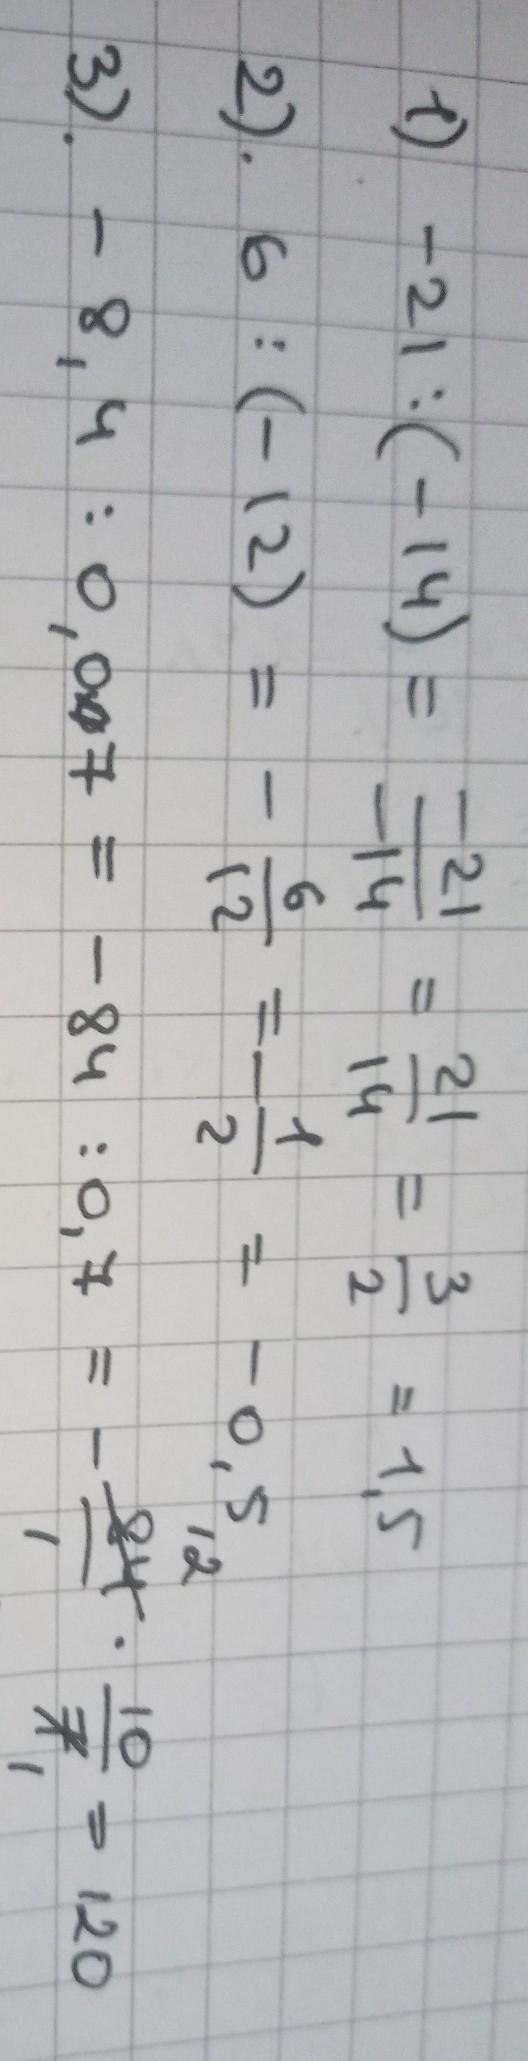 1) -21:(-14) = -21/-14 = 21/14 = 3/2 = 1,5
2). 6:(-12) = -6/12 = -1/2 = -0,5
12
3). -8,4 : 0,07 = -84 : 0,7 = -84/1 · 10/7 = 120
1